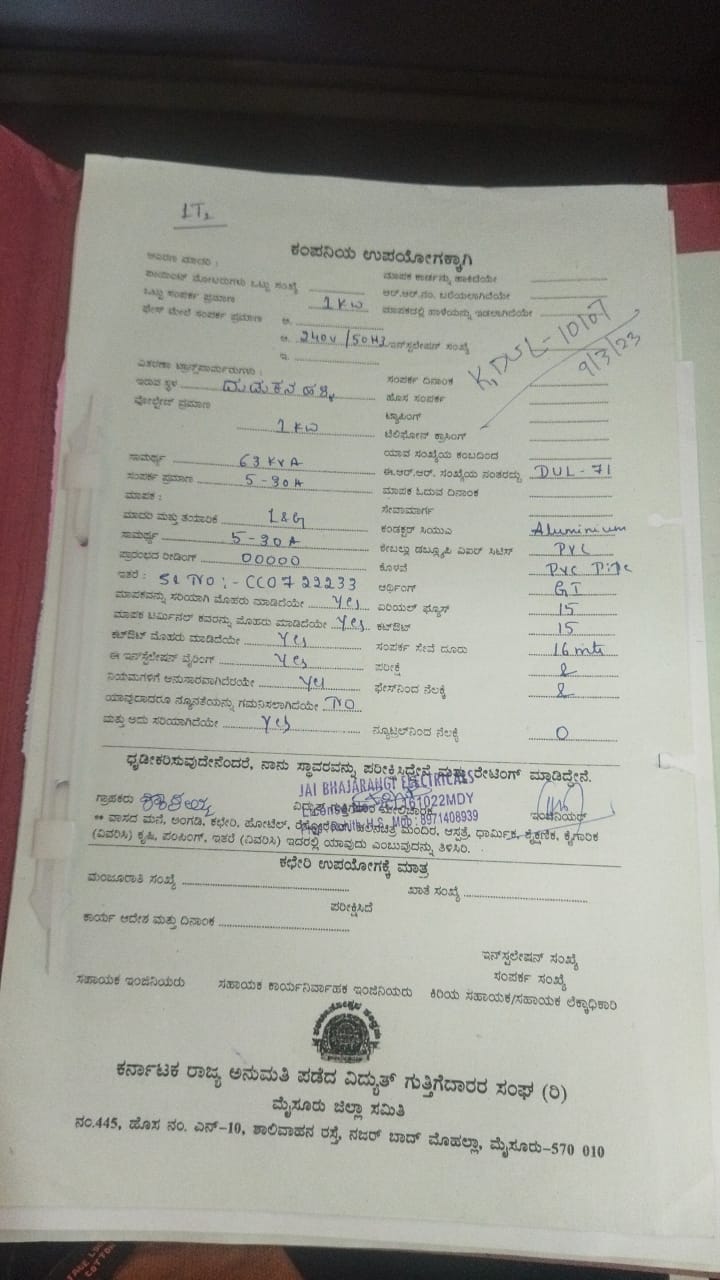 1T2
ಕಂಪನಿಯ ಉಪಯೋಗಕ್ಕಾಗಿ
ಮಾಪಕ ಕಾರ್ಡನ್ನು ಹಾಕಿದೆಯೇ
ಒಟ್ಟು ಸಂಖ್ಯೆ ಆರ್.ಆರ್.ನಂ. ಬರೆಯಲಾಗಿದೆಯೇ
ಒಟ್ಟು ಸಂಪರ್ಕ ಪ್ರಮಾಣ 1 KW ಮಾಪಕದಲ್ಲಿ ಹಾಳೆಯನ್ನು ಇಡಲಾಗಿದೆಯೇ
ಫೇಸ್ ಮೇಲೆ ಸಂಪರ್ಕ ಪ್ರಮಾಣ ಅ.
ಆ. 240V/50HZ ಇನ್‌ಸ್ಟಲೇಷನ್ ಸಂಖ್ಯೆ
ಇ.
K, DUL-10107
9/3/23
ವಿತರಣಾ ಟ್ರಾನ್ಸ್‌ಫಾರ್ಮರುಗಳು : ಸಂಪರ್ಕ ದಿನಾಂಕ
ಇರುವ ಸ್ಥಳ ಹೊಸ ಸಂಪರ್ಕ
ವೋಲ್ಟೇಜ್ ಪ್ರಮಾಣ ಟ್ಯಾಪಿಂಗ್
1 KW ಟೆಲಿಫೋನ್ ಕ್ರಾಸಿಂಗ್
ಯಾವ ಸಂಖ್ಯೆಯ ಕಂಬದಿಂದ
ಸಾಮರ್ಥ್ಯ 63 KVA ಈ.ಆರ್.ಆರ್. ಸಂಖ್ಯೆಯ ನಂತರದ್ದು DUL-71
ಸಂಪರ್ಕ ಪ್ರಮಾಣ 5-30A ಮಾಪಕ ಓದುವ ದಿನಾಂಕ
ಮಾಪಕ : ಸೇವಾಮಾರ್ಗ
ಮಾದರಿ ಮತ್ತು ತಯಾರಿಕೆ L&G ಕಂಡಕ್ಟರ್ ಸಿಯುಎ Aluminium
ಸಾಮರ್ಥ್ಯ 5-30A ಕೇಬಲ್ಲು ಡಬ್ಲ್ಯೂಪಿ ಏಐರ್ ಸಿಟಿಸ್ PVC
ಪ್ರಾರಂಭದ ರೀಡಿಂಗ್ 00000 ಕೊಳವೆ PVC Pipe
ಇತರೆ : Sl NO :- CC0722233 ಅರ್ಥಿಂಗ್ GI
ಮಾಪಕವನ್ನು ಸರಿಯಾಗಿ ಮೊಹರು ಮಾಡಿದೆಯೇ Yes ಏರಿಯಲ್ ಫ್ಯೂಸ್ 15
ಮಾಪಕ ಟರ್ಮಿನಲ್ ಕವರನ್ನು ಮೊಹರು ಮಾಡಿದೆಯೇ Yes ಕಟ್‌ಔಟ್ 15
ಕಟ್‌ಔಟ್ ಮೊಹರು ಮಾಡಿದೆಯೇ Yes ಸಂಪರ್ಕ ಸೇವೆ ದೂರು 16 mts
ಈ ಇನ್‌ಸ್ಟಲೇಷನ್ ವೈರಿಂಗ್ Yes ಪರೀಕ್ಷೆ
ನಿಯಮಗಳಿಗೆ ಅನುಸಾರವಾಗಿದೆಯೇ Yes ಫೇಸ್‌ನಿಂದ ನೆಲಕ್ಕೆ
ಯಾವುದಾದರೂ ನ್ಯೂನತೆಯನ್ನು ಗಮನಿಸಲಾಗಿದೆಯೇ NO
ಮತ್ತು ಅದು ಸರಿಯಾಗಿದೆಯೇ Yes ನ್ಯೂಟ್ರಲ್‌ನಿಂದ ನೆಲಕ್ಕೆ 0
ಧೃಡೀಕರಿಸುವುದೇನೆಂದರೆ, ನಾನು ಸ್ಥಾವರವನ್ನು ಪರೀಕ್ಷಿಸಿದ್ದೇನೆ ಮತ್ತು ರೇಟಿಂಗ್ ಮಾಡಿದ್ದೇನೆ.
JAI BHAJARANGI ELECTRICALS
ಗ್ರಾಹಕರು ವಿದ್ಯುತ್ ಗುತ್ತಿಗೆದಾರ ಮೇಲ್ವಿಚಾರಕ ಇಂಜಿನಿಯರ್
161022MDY
H.S. Mob : 8971408939
** ವಾಸದ ಮನೆ, ಅಂಗಡಿ, ಕಛೇರಿ, ಹೋಟೆಲ್, ಮಂದಿರ, ಆಸ್ಪತ್ರೆ, ಧಾರ್ಮಿಕ, ಶೈಕ್ಷಣಿಕ, ಕೈಗಾರಿಕ
(ವಿವರಿಸಿ) ಕೃಷಿ, ಪಂಪಿಂಗ್, ಇತರೆ (ವಿವರಿಸಿ) ಇದರಲ್ಲಿ ಯಾವುದು ಎಂಬುವುದನ್ನು ತಿಳಿಸಿರಿ.
ಕಛೇರಿ ಉಪಯೋಗಕ್ಕೆ ಮಾತ್ರ
ಮಂಜೂರಾತಿ ಸಂಖ್ಯೆ ಖಾತೆ ಸಂಖ್ಯೆ
ಪರೀಕ್ಷಿಸಿದೆ
ಕಾರ್ಯ ಆದೇಶ ಮತ್ತು ದಿನಾಂಕ
ಇನ್‌ಸ್ಟಲೇಷನ್ ಸಂಖ್ಯೆ
ಸಂಪರ್ಕ ಸಂಖ್ಯೆ
ಸಹಾಯಕ ಇಂಜಿನಿಯರು ಸಹಾಯಕ ಕಾರ್ಯನಿರ್ವಾಹಕ ಇಂಜಿನಿಯರು ಕಿರಿಯ ಸಹಾಯಕ/ಸಹಾಯಕ ಲೆಕ್ಕಾಧಿಕಾರಿ
ಕರ್ನಾಟಕ ರಾಜ್ಯ ಅನುಮತಿ ಪಡೆದ ವಿದ್ಯುತ್ ಗುತ್ತಿಗೆದಾರರ ಸಂಘ (ರಿ)
ಮೈಸೂರು ಜಿಲ್ಲಾ ಸಮಿತಿ
ನಂ.445, ಹೊಸ ನಂ. ಎನ್-10, ಶಾಲಿವಾಹನ ರಸ್ತೆ, ನಜರ್ ಬಾದ್ ಮೊಹಲ್ಲಾ, ಮೈಸೂರು-570 010